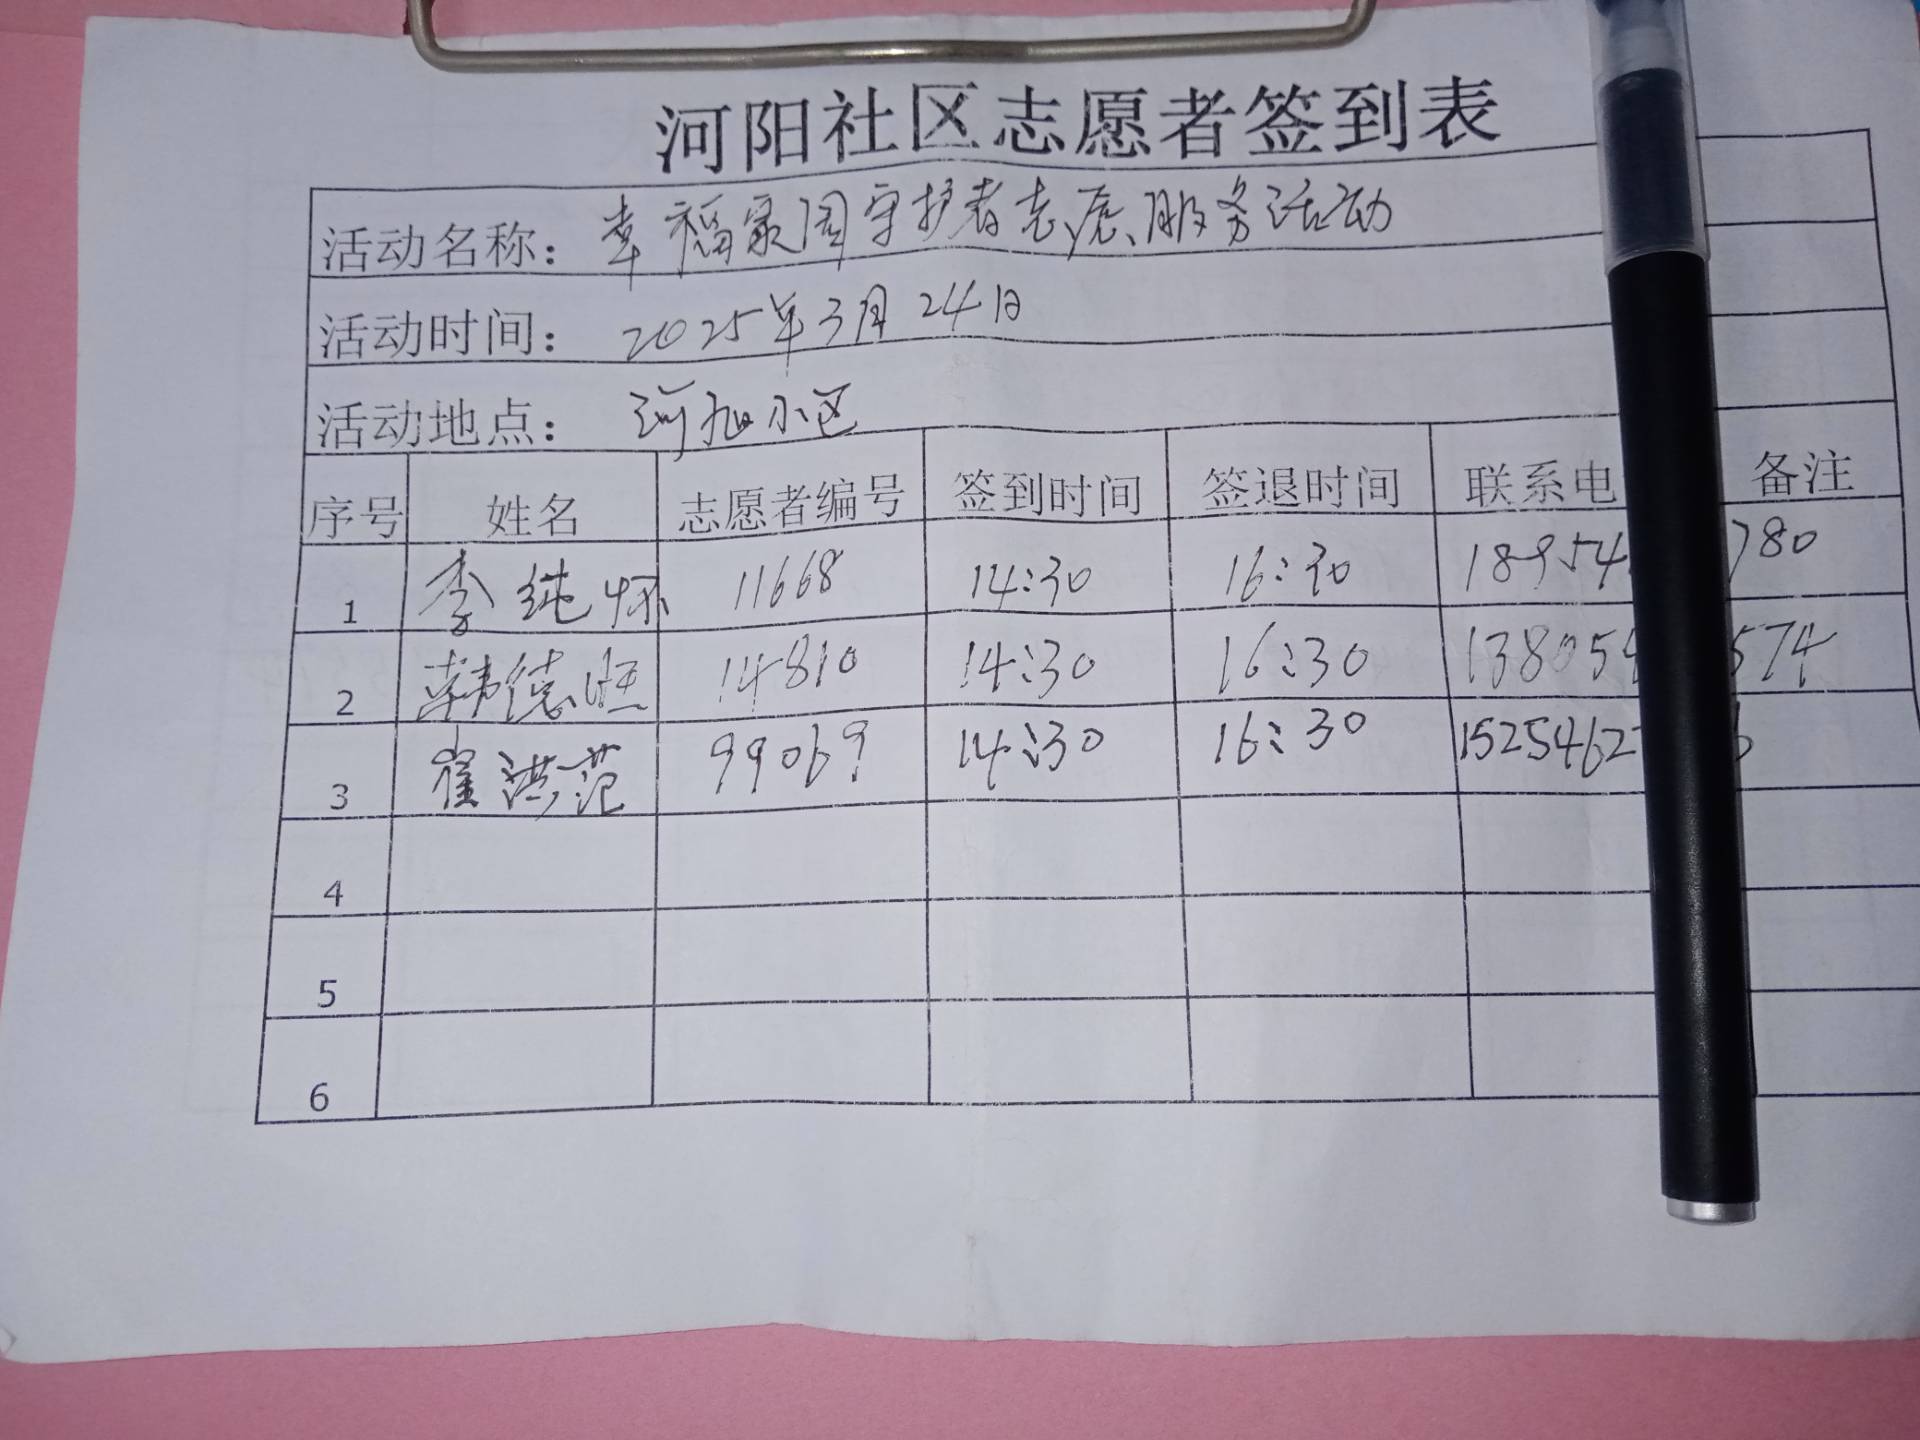 河阳社区志愿者签到表
活动名称：幸福家园守护者志愿服务活动
活动时间：2025年3月24日
活动地点：河旭小区
序号 姓名 志愿者编号 签到时间 签退时间 联系电 备注
1 李纯怀 11668 14:30 16:30 18954 780
2 韩德旺 14810 14:30 16:30 13805 574
3 崔洪范 99069 14:30 16:30 1525462
4
5
6